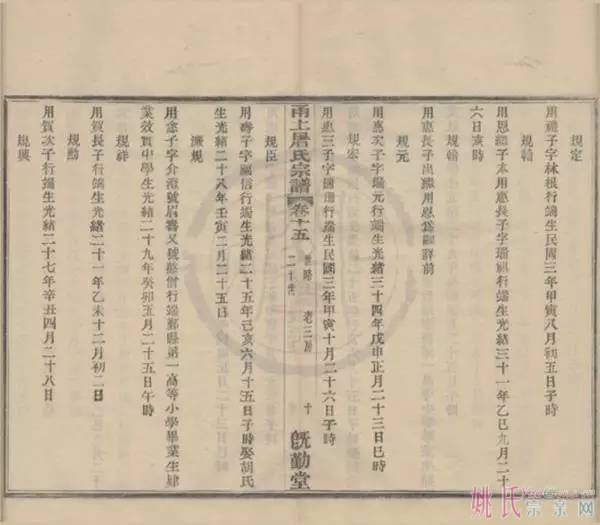 規定
用禮子字林根行端生民國三年甲寅八月初五日子時
規翰
用恩繼子本用惠長子字瑞祺行端生光緒三十一年乙巳九月二十
六日亥時
規翰
用惠長子出繼用恩爲嗣詳前
規元
用惠次子字瑞元行端生光緒三十四年戊申正月二十三日巳時
規宏
用惠三子字國行端生民國三年甲寅十月二十六日子時
甬上屠氏宗譜 卷十五 世略 二十世 老三房 十 旣勤堂
規臣
用壽子字國信行端生光緒二十五年己亥六月十五日子時娶胡氏
生光緒二十八年壬寅二月二十五日
規
用意子字介號眉壽又號行端鄞縣第一高等小學畢業生肄
業效實中學生光緒二十九年癸卯五月二十五日午時
規祥
用賀長子行端生光緒二十一年乙未十二月初二日
規勳
用賀次子行端生光緒二十七年辛丑四月二十八日
規興
姚氏宗亲网